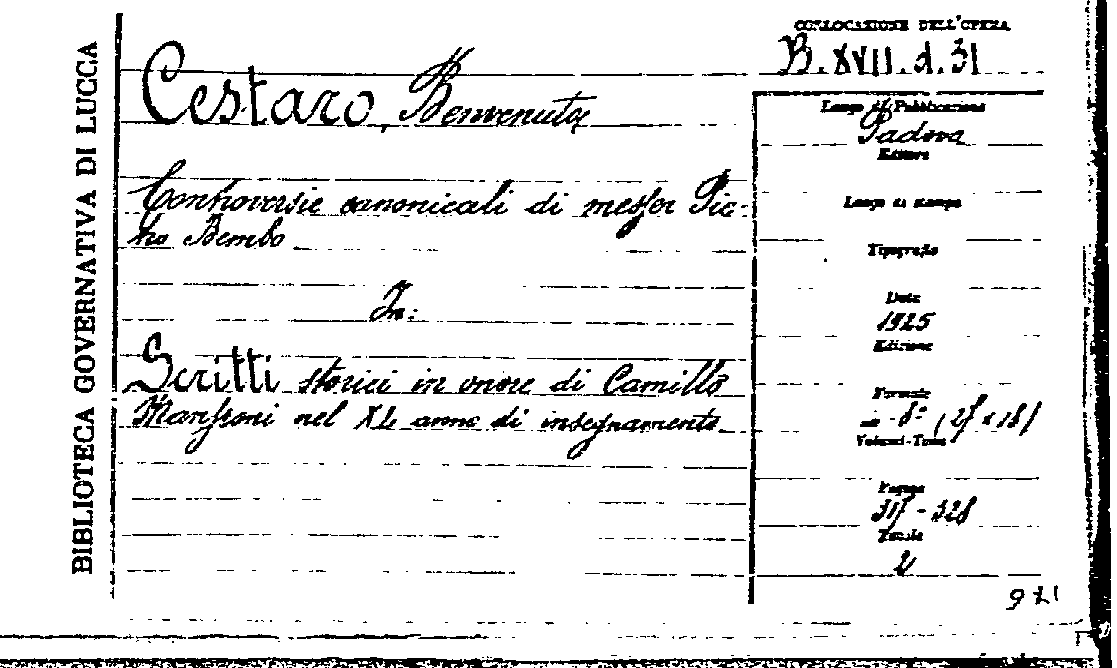 BIBLIOTECA GOVERNATIVA DI LUCCA
Cestaro, Benvenuto
Controversie canonicali di messer Pie-
tro Bembo
In:
Scritti storici in onore di Camillo
Manfroni nel XL anno di insegnamento
COLLOCAZIONE DELL'OPERA
B. XVII. d. 31
Luogo di Pubblicazione
Padova
Editore
Luogo di stampa
Tipografo
Data
1925
Edizione
Formato
in - 8º
Volumi-Tomi
Pagine
- 328
Tavole